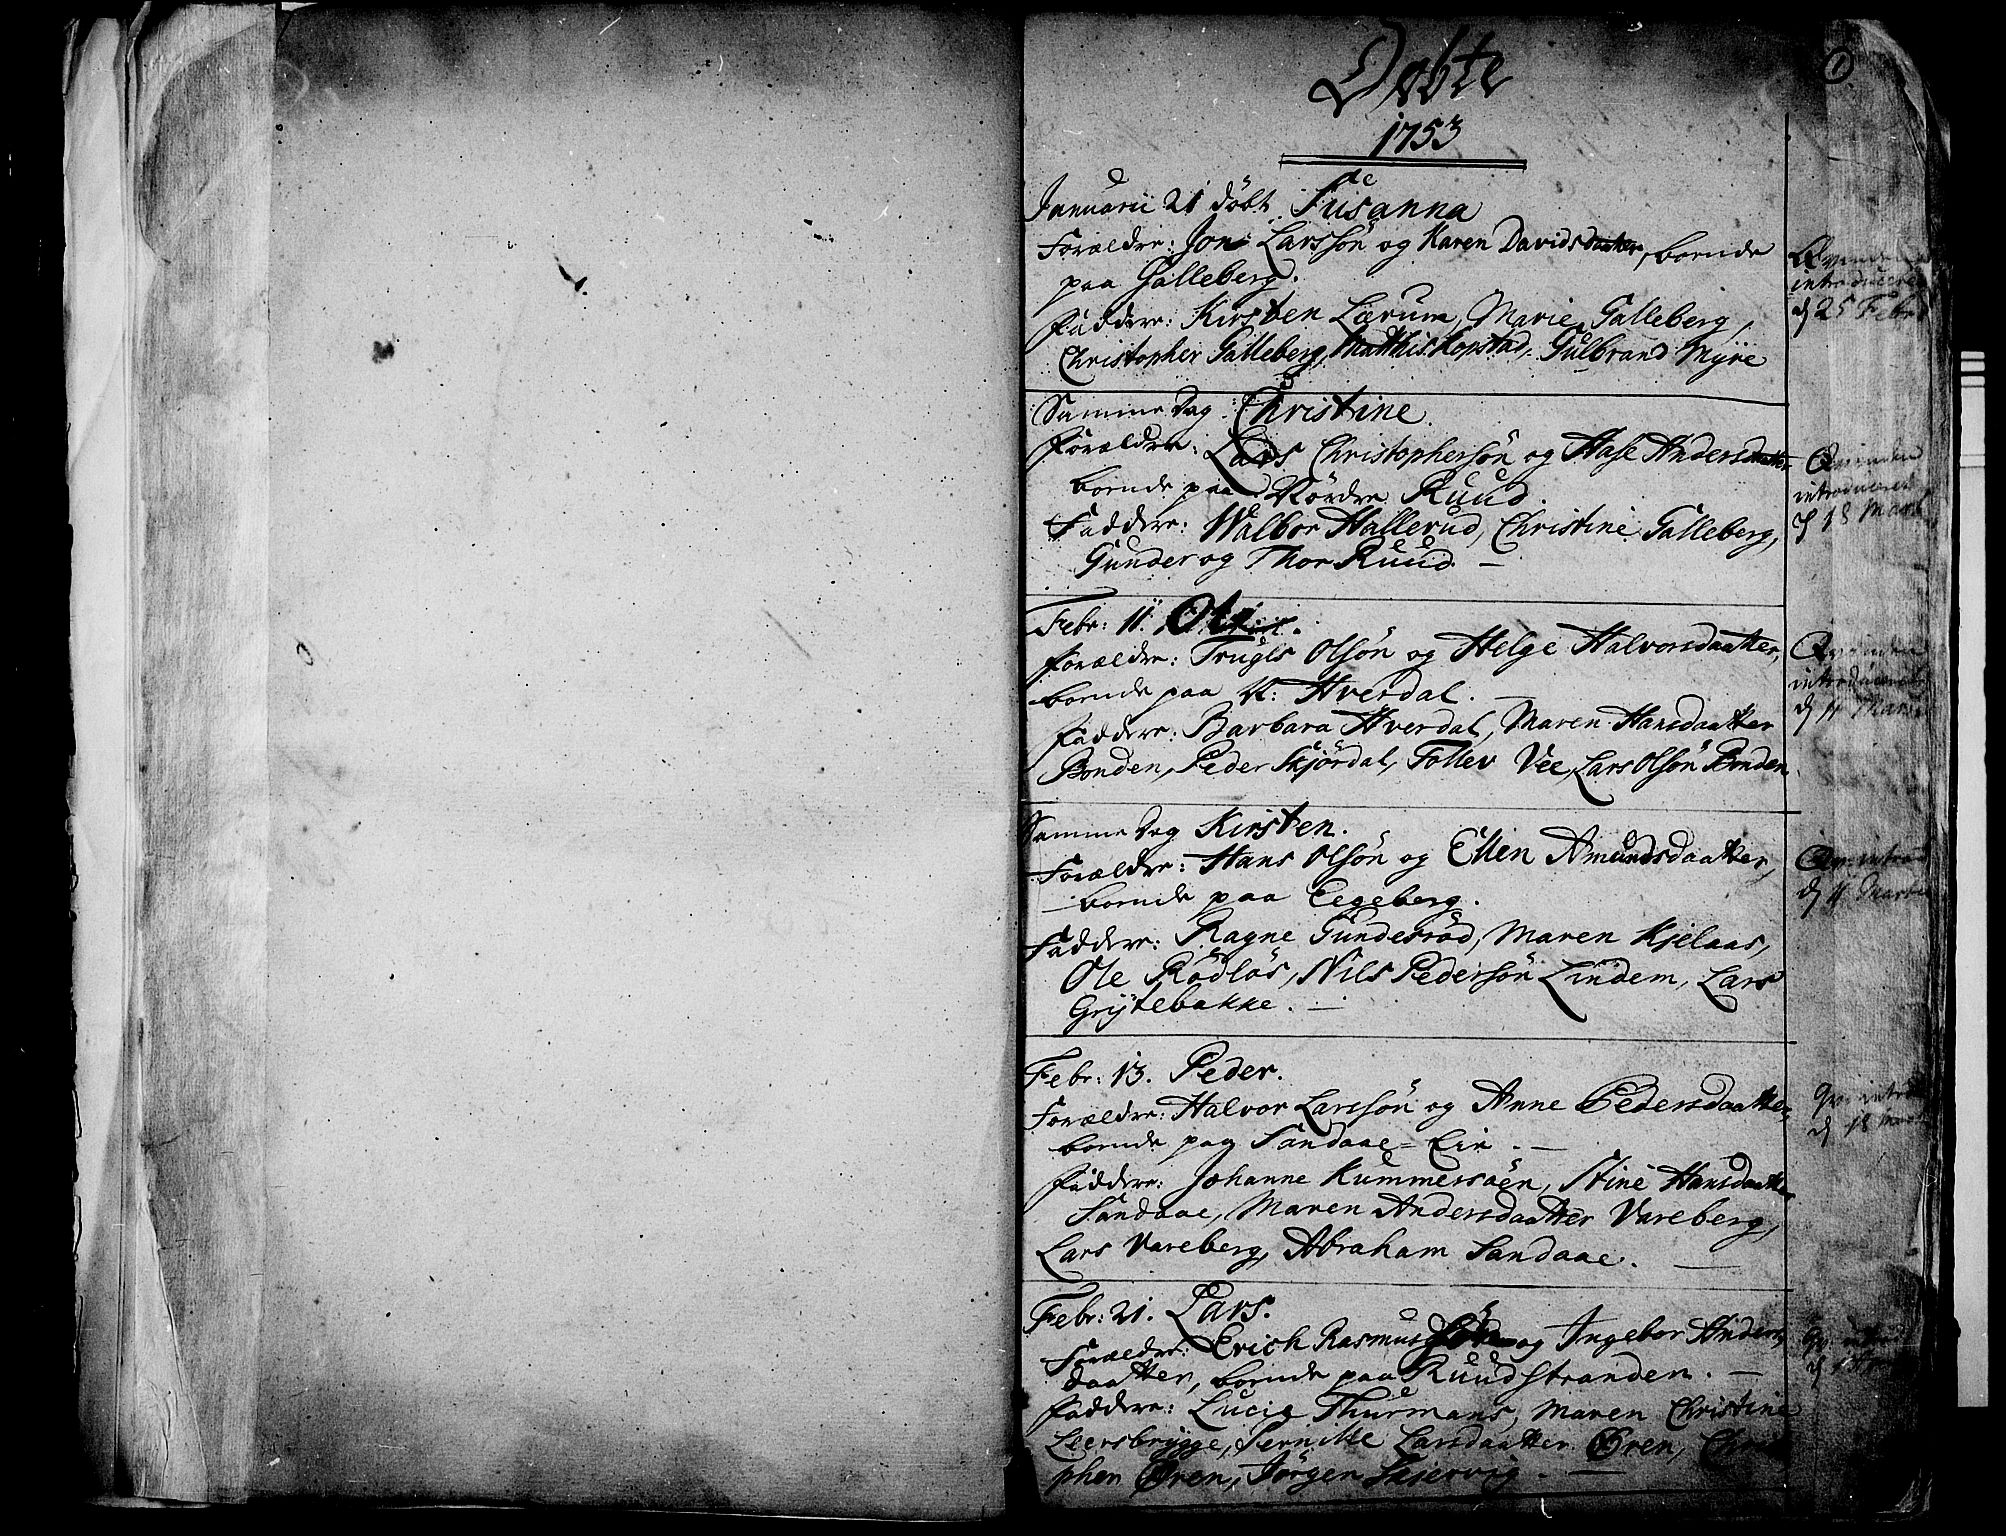 1
Døbte
1753
Januarii 21 døbt Susanna
Forældre: Jon Larssøn og Karen Davidsdaatter, boende
paa Galleberg.
Faddere: Kirsten Lærum, Marie Galleberg,
Christopher Galleberg, Matthis Kopstad, Gulbrand Myre
Qvinden
introduceret
d 25 Febr
Samme Dag Christine.
Forældre: Lars Christophersøn og Aase Andersdaatter
boende paa Nordre Ruud.
Faddere: Walbor Hallerud, Christine Galleberg,
Gunder og Thor Ruud. —
Qvinden
introduceret
d 18 Marti
Febr: 11. Ole
Forældre: Trugls Olsøn og Helge Halvorsdaatter,
boende paa N: Hverdal. —
Faddere: Barbara Hverdal, Maren Hansdaatter
Bonden, Peder Skjørdal, Tollev Vee, Lars Olsøn Bonden.
Qvinden
introduceret
d 4 Martii
Samme Dag Kirsten.
Forældre: Hans Olsøn og Ellen Amundsdaatter,
boende paa Eegeberg.
Faddere: Ragne Gunderød, Maren Kjelaas,
Ole Rødløs, Nils Pedersøn Lindem, Lars
Grytebakke. —
Qv: introd
d 4 Martii
Febr: 13. Peder.
Forældre: Halvor Larssøn og Anne Pedersdaatter
boende paa Sandaae-Eie. —
Faddere: Johanne Kummersøen, Stine Hansdaatter
Sandaae, Maren Andersdaatter Vareberg,
Lars Vareberg, Abraham Sandaae. —
Qv: introd
d 18 Marti
Febr: 21. Lars.
Forældre: Erich Rasmussøn og Ingebor Anders
daatter, boende paa Ruudstranden. —
Faddere: Lucia Thurmans, Maren Christine
Leersbrygge, Pernille Larsdaatter Øren, Christo
pher Øren, Jørgen Skiervig. —
Qv: introd